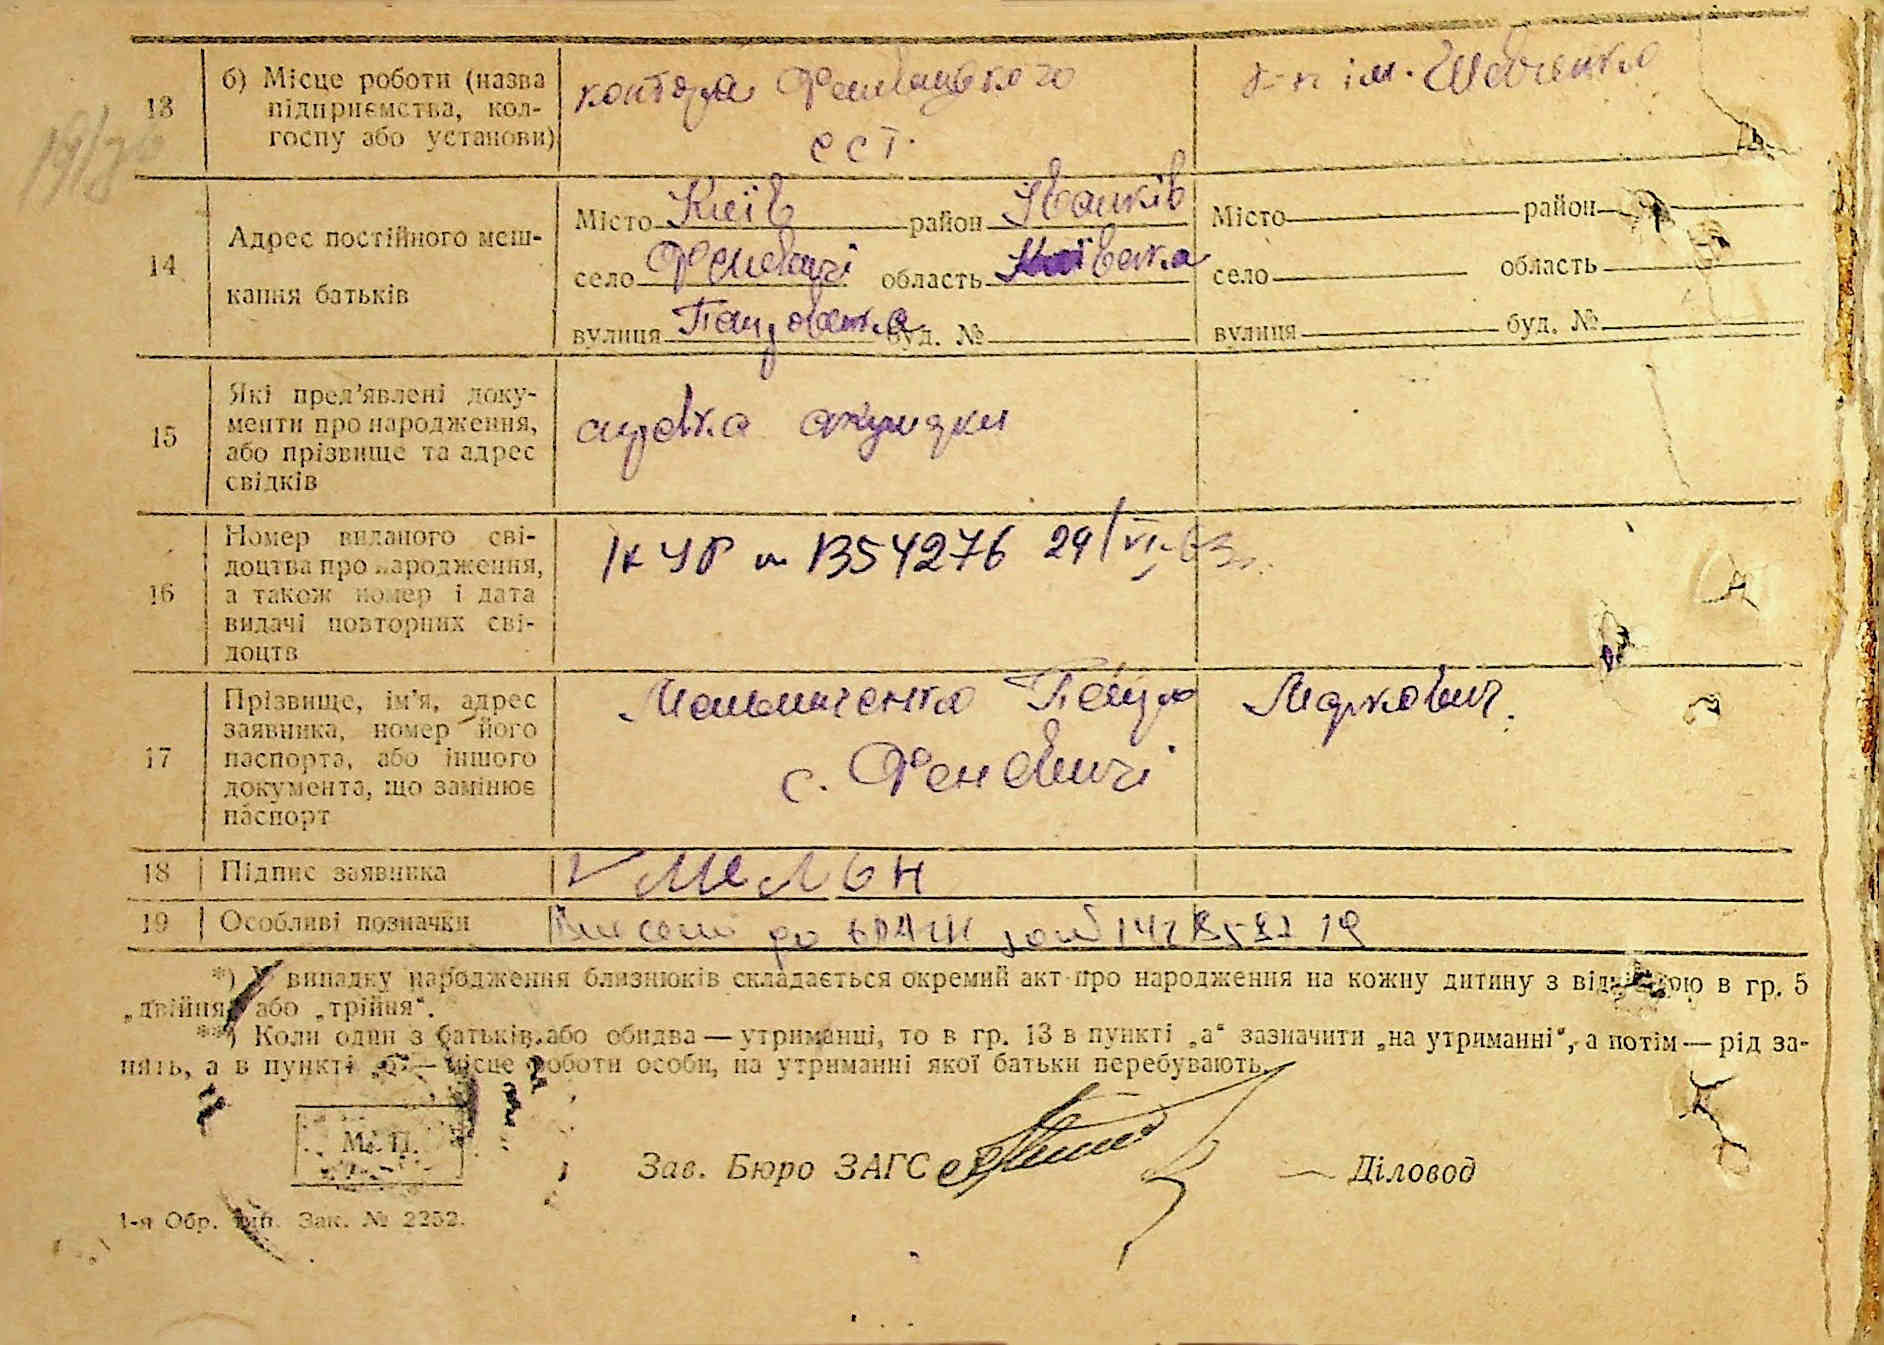 13
б) Місце роботи (назва
підприємства, кол-
госпу або установи)
контора Феневицького
ест.
к-п ім. Шевченка
14
Адрес постійного меш-
кання батьків
Місто Київ район Іванків
село Феневичі область Київська
вулиця буд. №
Місто район
село область
вулиця буд. №
15
Які пред'явлені доку-
менти про народження,
або прізвище та адрес
свідків
справка акушерки
16
Номер виданого сві-
доцтва про народження,
а також номер і дата
видачі повторних сві-
доцтв
354276 29/VI-63г.
17
Прізвище, ім'я, адрес
заявника, номер його
паспорта, або іншого
документа, що замінює
паспорт
Мельниченко Маркович.
с. Феневичі
18
Підпис заявника
Мельн
19
Особливі позначки
Внесено до
*) У випадку народження близнюків складається окремий акт про народження на кожну дитину з відміткою в гр. 5
„двійня" або „трійня".
**) Коли один з батьків або обидва — утриманці, то в гр. 13 в пункті „а" зазначити „на утриманні", а потім — рід за-
нять, а в пункті „б" — місце роботи особи, на утриманні якої батьки перебувають.
М. П.
Зав. Бюро ЗАГС
Діловод
1-я Обр. тип. Зак. № 2252.